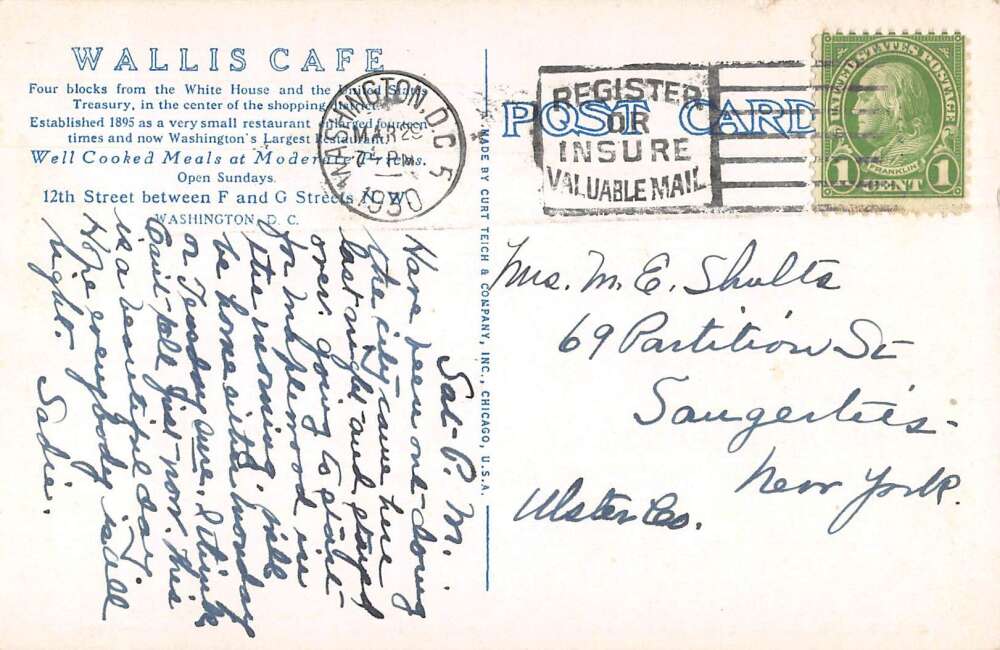 WALLIS CAFE
Four blocks from the White House and the United States
Treasury, in the center of the shopping district.
Established 1895 as a very small restaurant enlarged fourteen
times and now Washington's Largest Restaurant.
Well Cooked Meals at Moderate Prices.
Open Sundays.
12th Street between F and G Streets N. W.
WASHINGTON, D. C.
WASHINGTON, D.C. 5
MAR 29
7 - PM
1930
REGISTER
OR
INSURE
VALUABLE MAIL
POST CARD
UNITED STATES POSTAGE
FRANKLIN
1 CENT 1
MADE BY CURT TEICH & COMPANY, INC., CHICAGO, U.S.A.
Sat- P. M.
Have been out doing
the city came here
last night and stayed
over. going to start
for in
the morning. will
be home either Monday
or Tuesday sure. I think
Can't tell just now. this
is a beautiful day.
Hope everybody is all
right.
Sadie.
Mrs. M. E. Shults
69 Partition St
Saugerties-
New York.
Ulster Co.